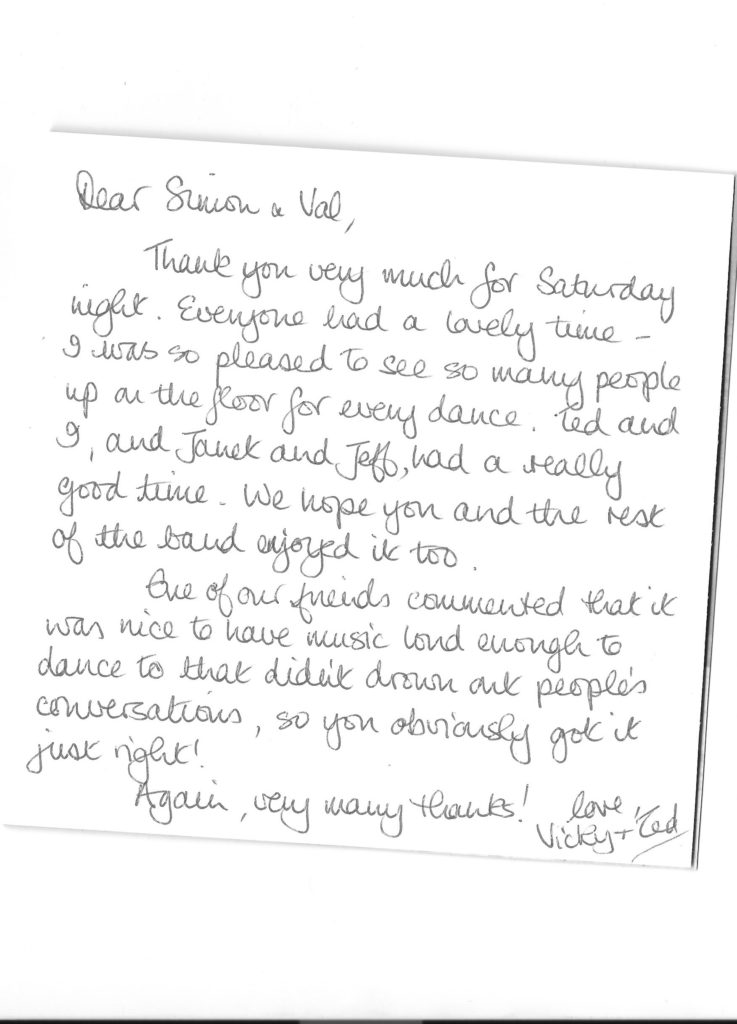 Dear Simon & Val,
Thank you very much for Saturday
night. Everyone had a lovely time -
I was so pleased to see so many people
up on the floor for every dance. Ted and
I, and Janet and Jeff, had a really
good time. We hope you and the rest
of the band enjoyed it too.
One of our friends commented that it
was nice to have music loud enough to
dance to that didn't drown out people's
conversations, so you obviously got it
just right!
Again, very many thanks! love,
Vicky + Ted